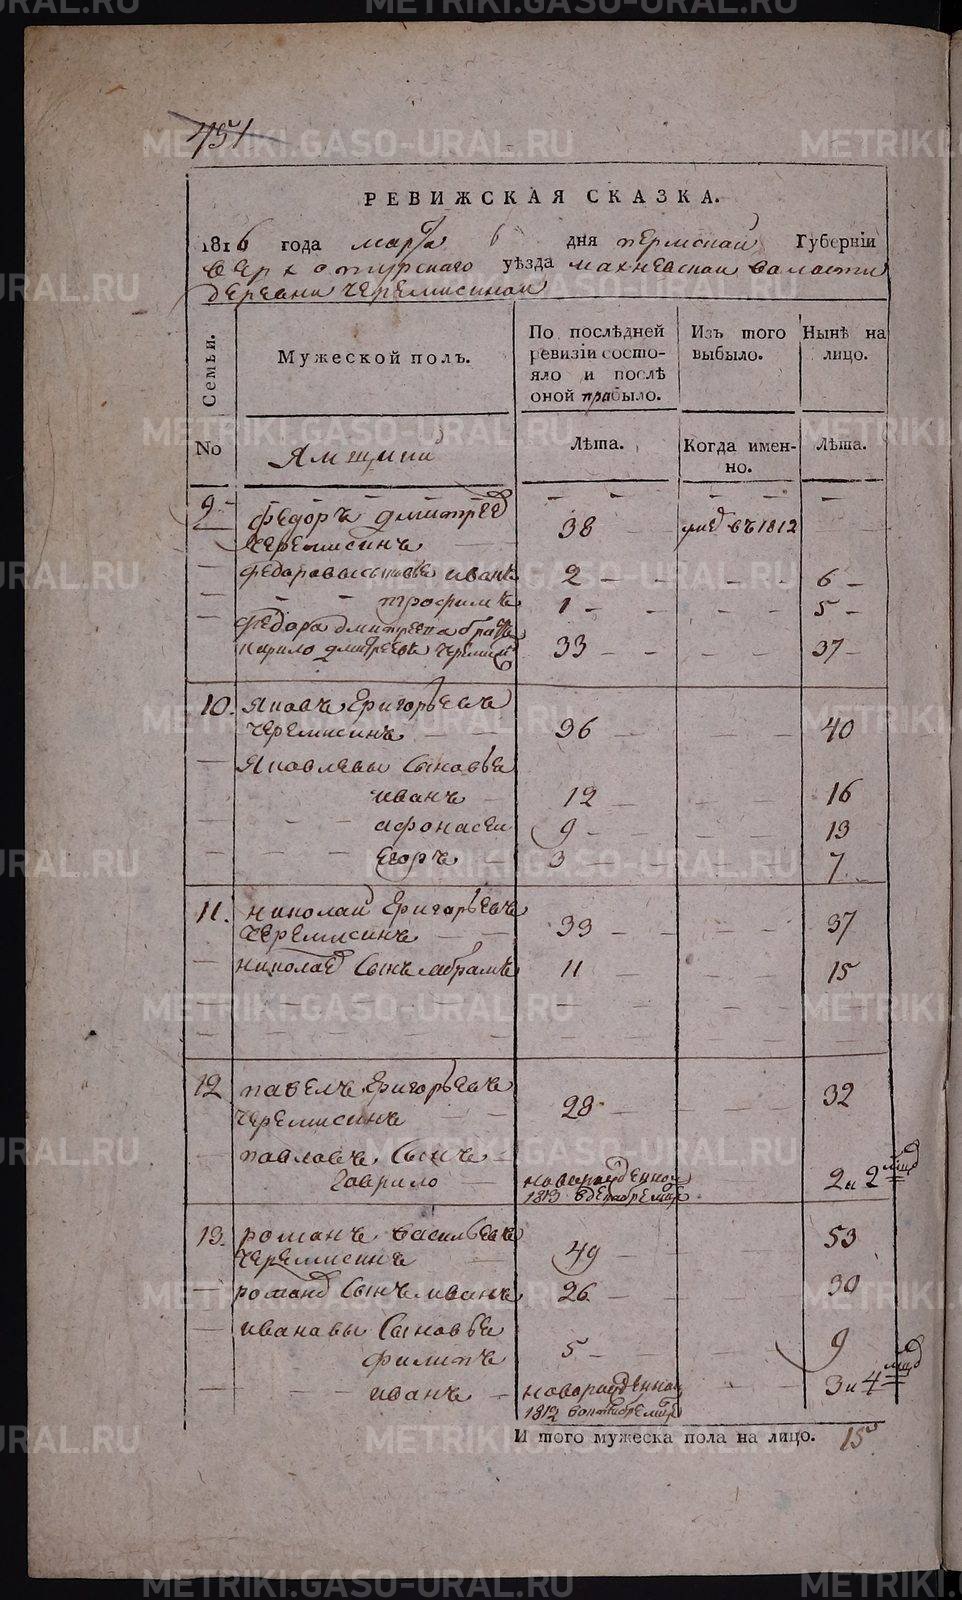 451
РЕВИЖСКАЯ СКАЗКА.
1816 года марта 6 дня пермской Губерніи
верхотурскаго уѣзда махневской валасти
деревни черемисиной
Семьи.
Мужеской полъ.
По послѣдней ревизіи состояло и послѣ оной прибыло.
Изъ того выбыло.
Нынѣ на лицо.
No
Ямщики
Лѣта.
Когда именно.
Лѣта.
9 федоръ дмитреев
черемисинъ 38 умер въ 1812
федоравы сыновье иванъ 2 6
трофимъ 1 5
федора дмитреева братъ
кирило дмитреевъ черемисин 33 37
10. яковъ григорьевъ
черемисинъ 36 40
яковлевы сыновье
иванъ 12 16
афонасеи 9 13
егоръ 3 7
11. николаи григорьевъ
черемисинъ 33 37
николаев сынъ абрамъ 11 15
12 павелъ григорьевъ
черемисинъ 28 32
павловъ сынъ
гаврило новорожденной 2 и 2 мцов
1813 в декабре мце
13. романъ васильевъ
черемисинъ 49 53
романов сынъ иванъ 26 30
ивановы сыновье
филипъ 5 9
иванъ новорожденной 3 и 4 мцов
1812 в октебре мце
И того мужеска пола на лицо. 15
METRIKI.GASO-URAL.RU